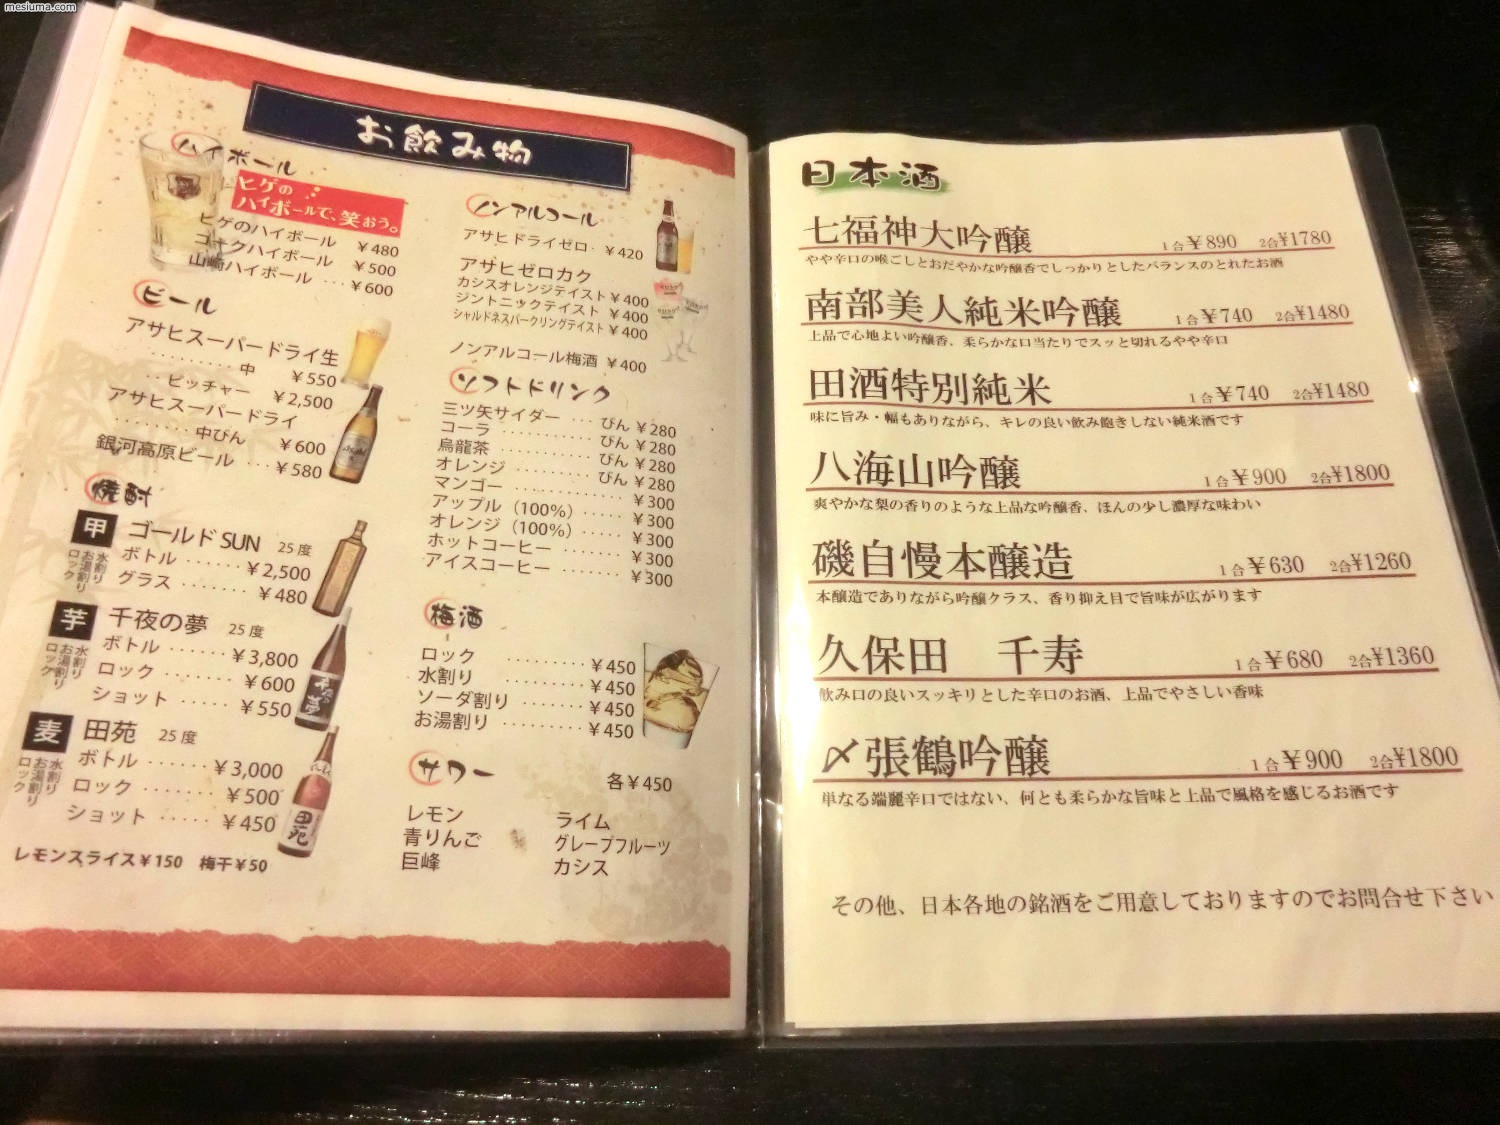 mesiuma.com
お飲み物
ハイボール
ヒゲの
ハイボールで、笑おう。
ヒゲのハイボール ¥480
コークハイボール ¥500
山崎ハイボール ¥600
ビール
アサヒスーパードライ生
中 ¥550
ピッチャー ¥2,500
アサヒスーパードライ
中びん ¥600
銀河高原ビール ¥580
焼酎
甲 ゴールドSUN 25度
水割り
お湯割り
ロック
ボトル ¥2,500
グラス ¥480
芋 千夜の夢 25度
水割り
お湯割り
ロック
ボトル ¥3,800
ロック ¥600
ショット ¥550
麦 田苑 25度
水割り
お湯割り
ロック
ボトル ¥3,000
ロック ¥500
ショット ¥450
レモンスライス¥150 梅干¥50
ノンアルコール
アサヒドライゼロ ¥420
アサヒゼロカク
カシスオレンジテイスト ¥400
ジントニックテイスト ¥400
シャルドネスパークリングテイスト ¥400
ノンアルコール梅酒 ¥400
ソフトドリンク
三ツ矢サイダー びん ¥280
コーラ びん ¥280
烏龍茶 びん ¥280
オレンジ びん ¥280
マンゴー ¥300
アップル(100%) ¥300
オレンジ(100%) ¥300
ホットコーヒー ¥300
アイスコーヒー ¥300
梅酒
ロック ¥450
水割り ¥450
ソーダ割り ¥450
お湯割り ¥450
サワー 各¥450
レモン ライム
青りんご グレープフルーツ
巨峰 カシス
日本酒
七福神大吟醸 1合¥890 2合¥1780
やや辛口の喉ごしとおだやかな吟醸香でしっかりとしたバランスのとれたお酒
南部美人純米吟醸 1合¥740 2合¥1480
上品で心地よい吟醸香、柔らかな口当たりでスッと切れるやや辛口
田酒特別純米 1合¥740 2合¥1480
味に旨み・幅もありながら、キレの良い飲み飽きしない純米酒です
八海山吟醸 1合¥900 2合¥1800
爽やかな梨の香りのような上品な吟醸香、ほんの少し濃厚な味わい
磯自慢本醸造 1合¥630 2合¥1260
本醸造でありながら吟醸クラス、香り抑え目で旨味が広がります
久保田 千寿 1合¥680 2合¥1360
飲み口の良いスッキリとした辛口のお酒、上品でやさしい香味
〆張鶴吟醸 1合¥900 2合¥1800
単なる端麗辛口ではない、何とも柔らかな旨味と上品で風格を感じるお酒です
その他、日本各地の銘酒をご用意しておりますのでお問合せ下さい